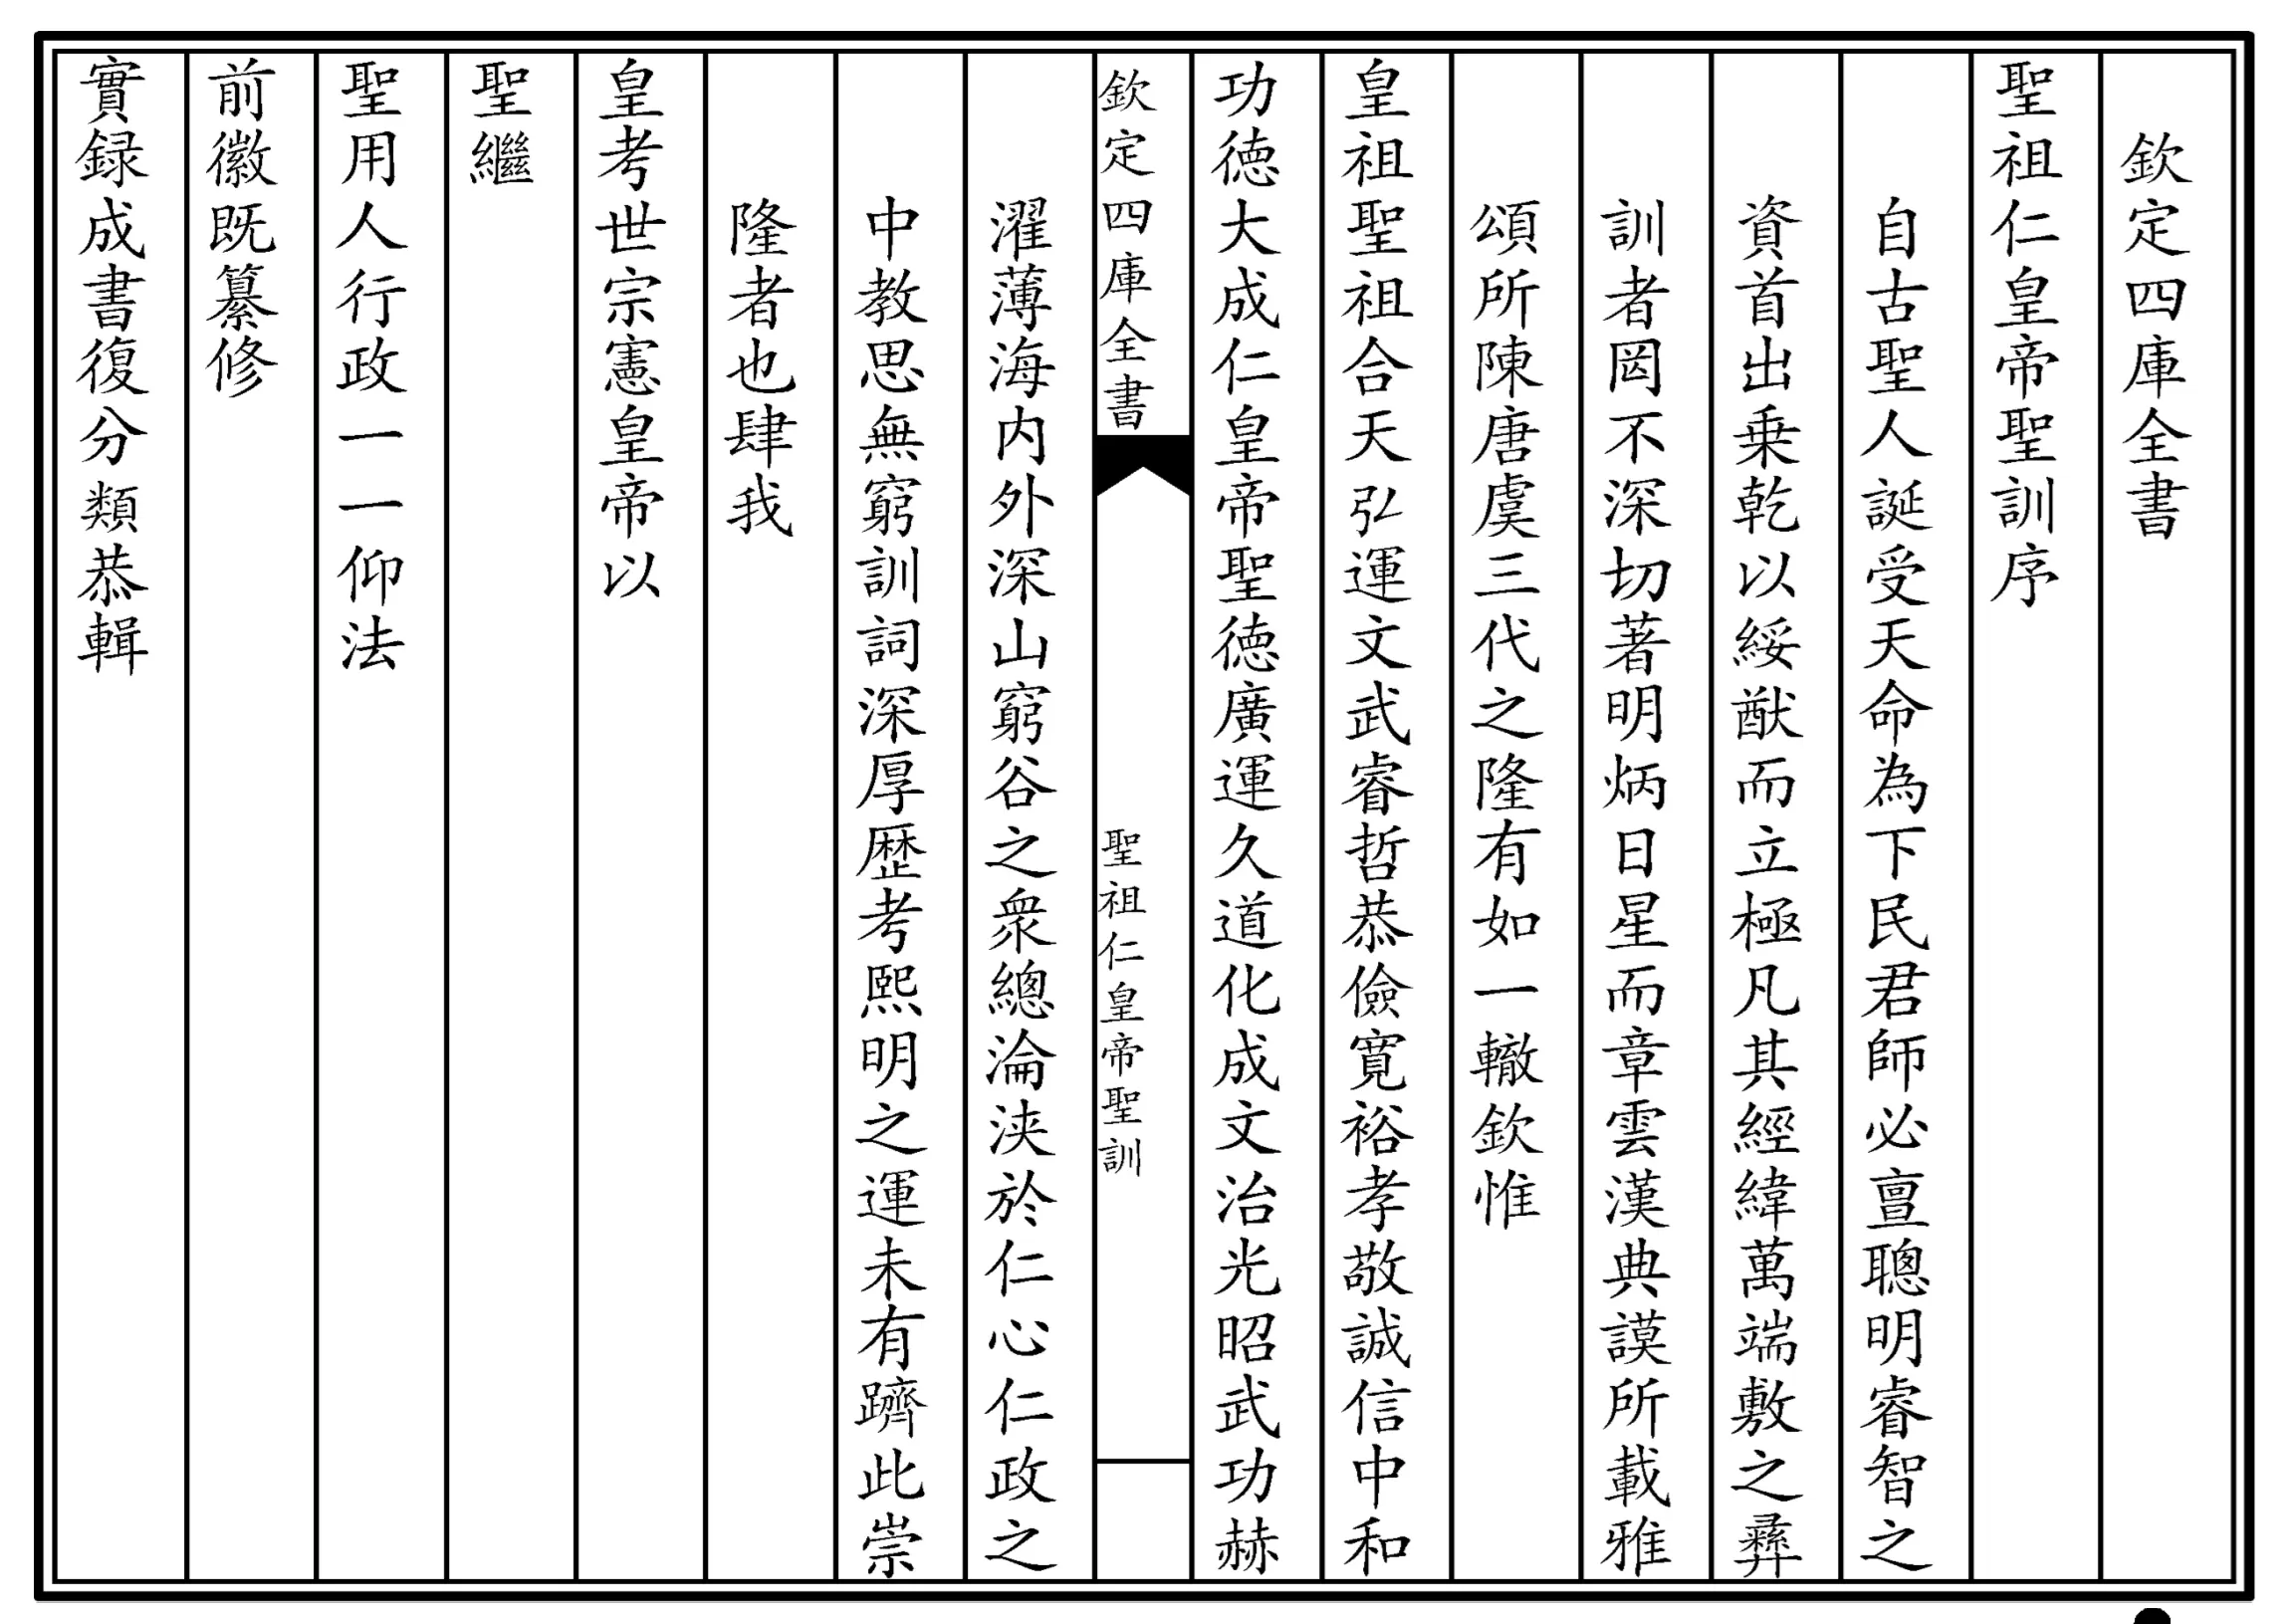 欽定四庫全書
聖祖仁皇帝聖訓序
自古聖人誕受天命為下民君師必亶聰明睿智之
資首出乗乾以綏猷而立極凡其經緯萬端敷之彞
訓者罔不深切著明炳日星而章雲漢典謨所載雅
頌所陳唐虞三代之隆有如一轍欽惟
皇祖聖祖合天弘運文武睿哲恭儉寛裕孝敬誠信中和
功徳大成仁皇帝聖徳廣運久道化成文治光昭武功赫
欽定四庫全書
聖祖仁皇帝聖訓
濯薄海内外深山窮谷之衆總淪浹於仁心仁政之
中教思無窮訓詞深厚歴考熙明之運未有躋此崇
隆者也肆我
皇考世宗憲皇帝以
聖繼
聖用人行政一一仰法
前徽既纂修
實録成書復分類恭輯